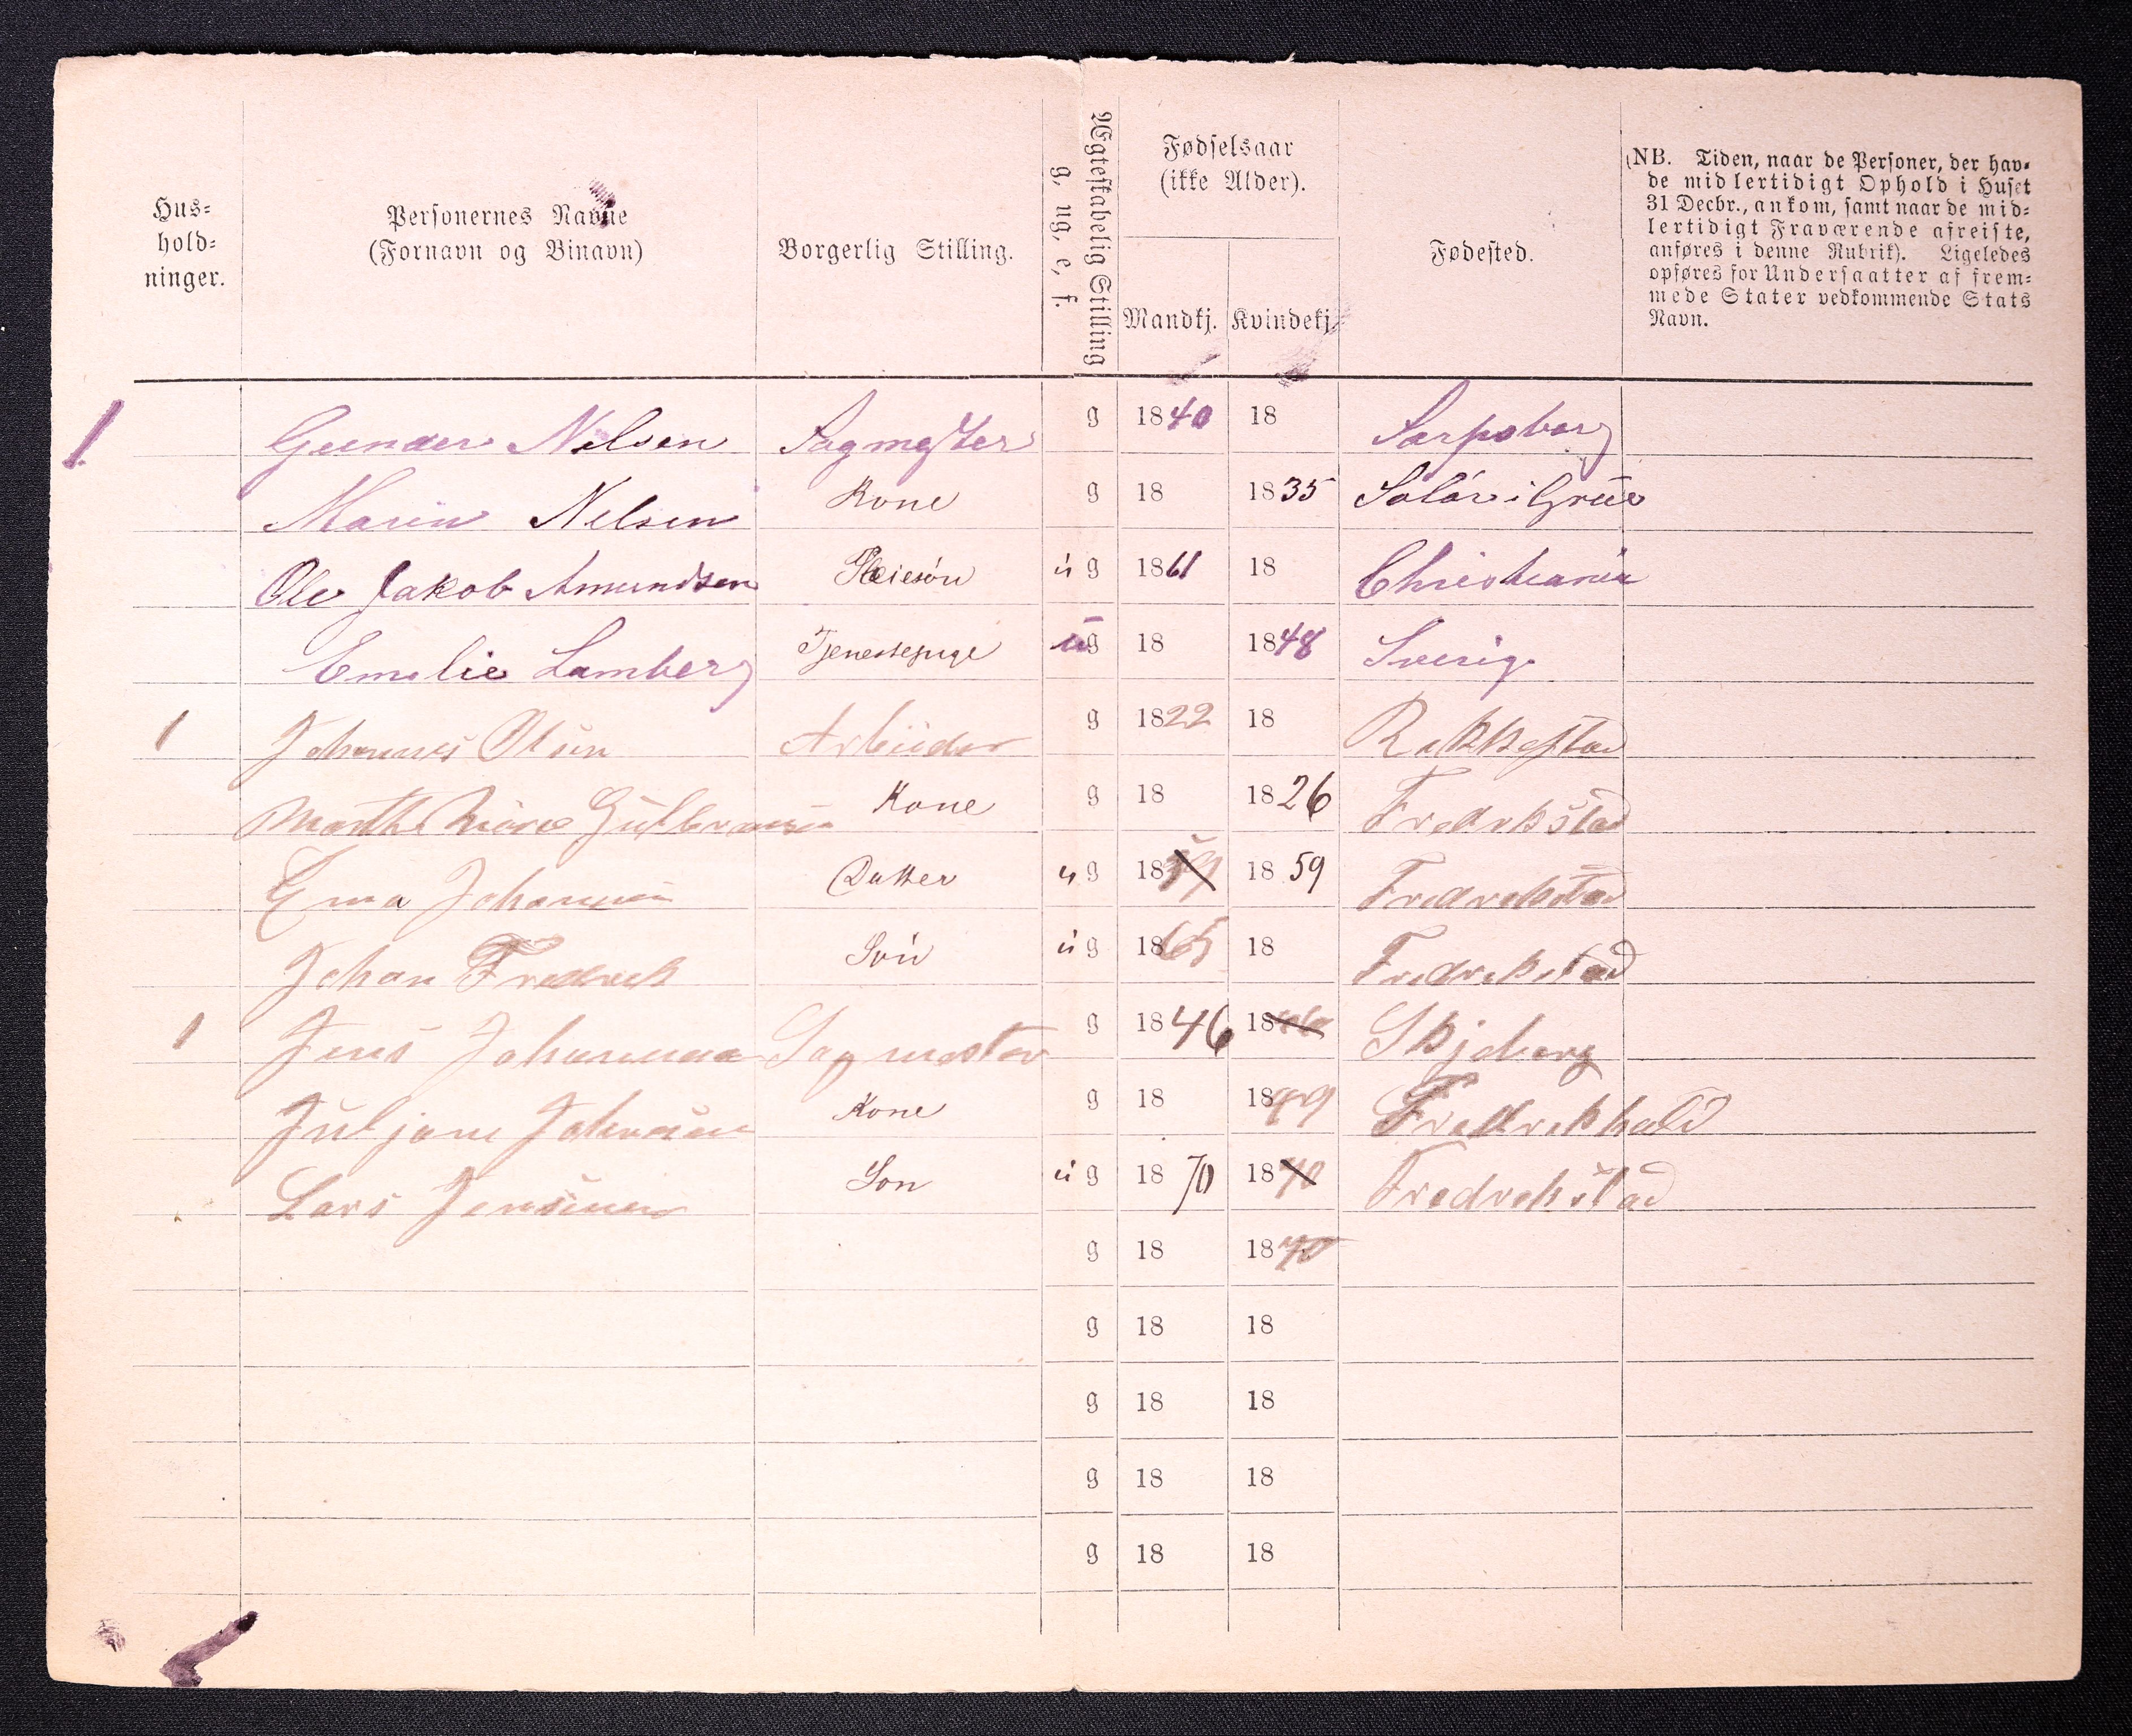 Hus-
hold-
ninger.
Personernes Navne
(Fornavn og Binavn)
Borgerlig Stilling.
Ægteskabelig Stilling
g, ug, e, f.
Fødselsaar
(ikke Alder).
Mandkj. Kvindekj.
Fødested.
(NB. Tiden, naar de Personer, der hav-
de midlertidigt Ophold i Huset
31 Decbr., ankom, samt naar de mid-
lertidigt Fraværende afreiste,
anføres i denne Rubrik). Ligeledes
opføres for Undersaatter af frem-
mede Stater vedkommende Stats
Navn.
1 Gunder Nilsen Sagmester g 1840 18 Sarpsborg
Marin Nilsen Kone g 18 1835 Solør i Grue
Ole Jakob Amundsen Pleiesøn ug 1861 18 Christiania
Emelie Lamberg Tjenestepige ug 18 1848 Sverige
1 Johannes Olsen Arbeider g 1822 18 Rakkestad
Marthe Gulbransen Kone g 18 1826 Fredrkstad
Ema Johannesen Datter ug 1859 1859 Fredrekstad
Johan Fredrek Søn ug 1865 18 Fredrekstad
1 Jens Johannesen Sagmester g 1846 1846 Skjeberg
Juljane Johnsen Kone g 18 1849 Fredrekhald
Lars Jensen Son ug 1870 1870 Fredrekstad
g 18 1870
g 18 18
g 18 18
g 18 18
g 18 18